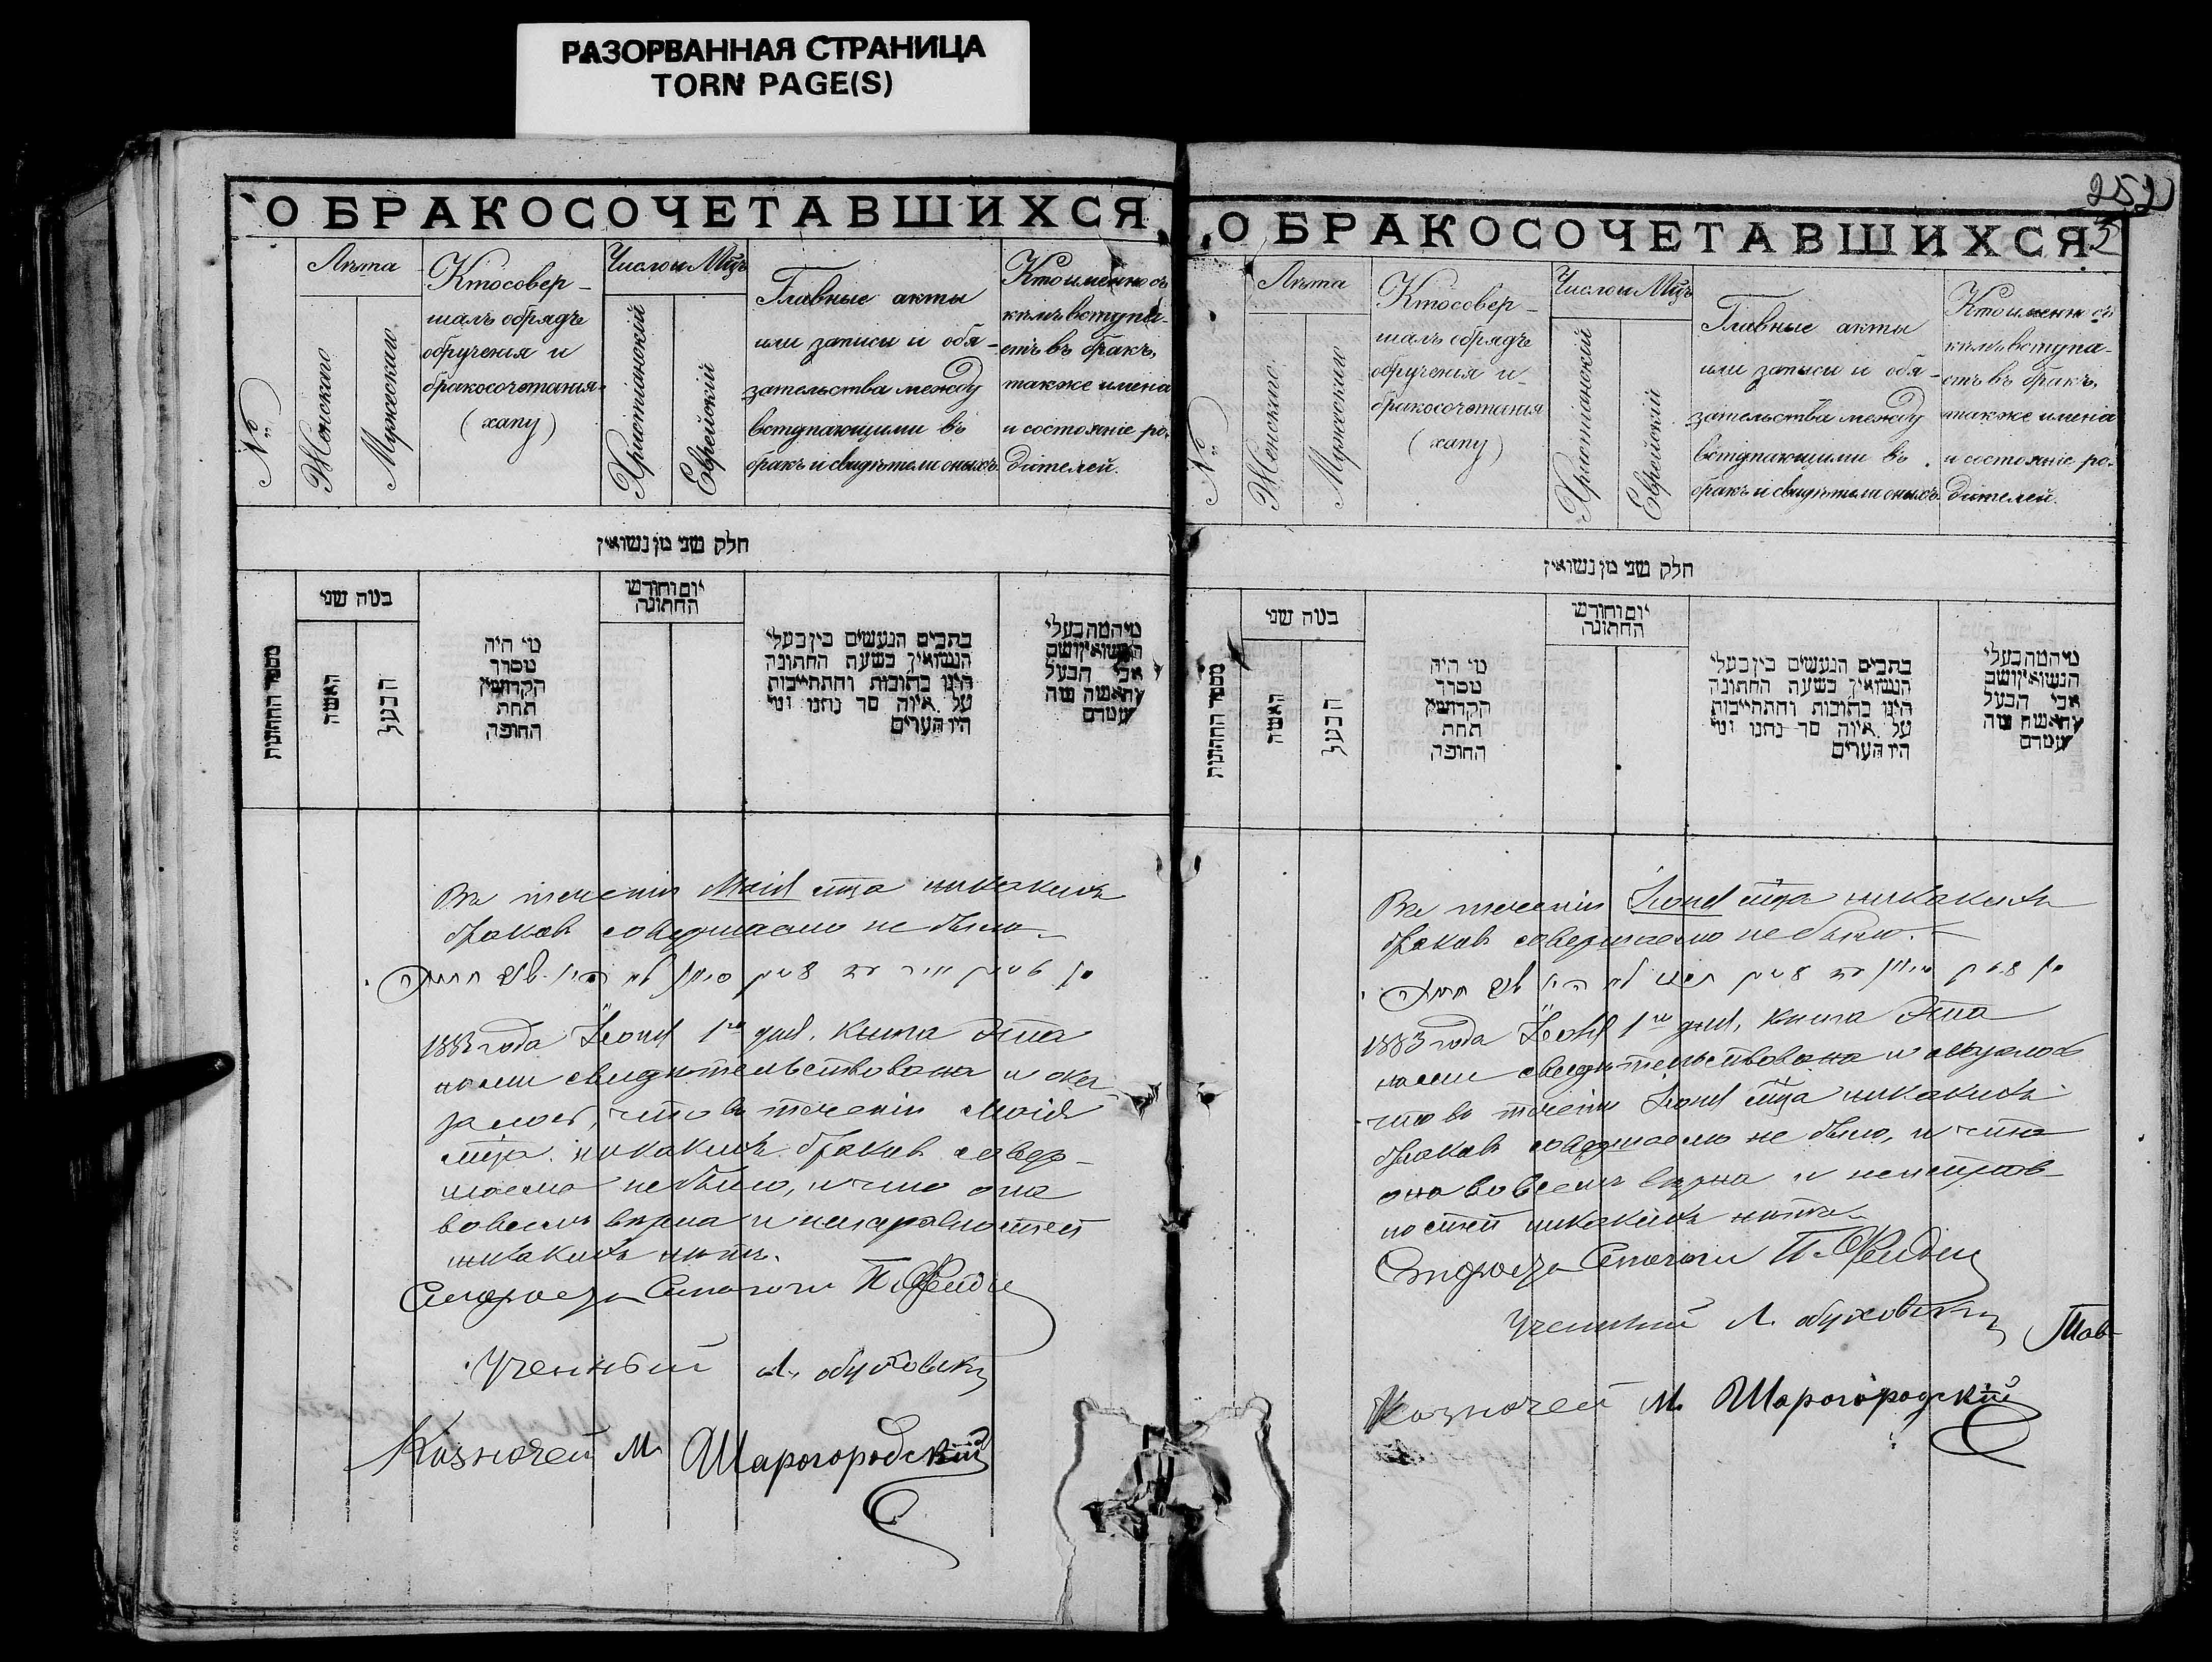 РАЗОРВАННАЯ СТРАНИЦА
TORN PAGE(S)
О БРАКОСОЧЕТАВШИХСЯ
№
Лѣта
Женскаго
Мужескаго
Кто совер-
шалъ обрядъ
обрученія и
бракосочетанія
(хапу)
Число и Мцъ
Христіанскій
Еврейскій
Главные акты
или записи и обя-
зательства между
вступающими въ
бракъ и свидѣтели оныхъ.
Кто именно съ
кѣмъ вступа-
етъ въ бракъ,
также имена
и состояніе ро-
дителей.
חלק שני מן נשואין
מספר החתונות
במה שני
האשה
הבעל
מי היה
מסדר
הקדושין
תחת
החופה
יום וחודש
החתונה
כתבים הנעשים בין בעלי
הנשואין בשעת החתונה
היינו כתובות והתחייבות
על איזה סך נתנו ומי
היו הערים
מי המה בעלי
הנשואין ושם
אבי הבעל
והאשה ומה
מעמדם
Въ теченіи Маія мца никакихъ
браковъ совершаемо не было.
1883 года Іюня 1го дня, книга эта
нами свидѣтельствована и ока-
залось, что въ теченіи Маія
мца никакихъ браковъ совер-
шаемо не было, и что она
во всемъ вѣрна и неисправностей
никакихъ нѣтъ.
Староста Синагоги П.
Ученный Л. Обуховскій
Казначей М. Шарогородскій
252
О БРАКОСОЧЕТАВШИХСЯ
№
Лѣта
Женскаго
Мужескаго
Кто совер-
шалъ обрядъ
обрученія и
бракосочетанія
(хапу)
Число и Мцъ
Христіанскій
Еврейскій
Главные акты
или записи и обя-
зательства между
вступающими въ
бракъ и свидѣтели оныхъ.
Кто именно съ
кѣмъ вступа-
етъ въ бракъ,
также имена
и состояніе ро-
дителей.
חלק שני מן נשואין
מספר החתונות
במה שני
האשה
הבעל
מי היה
מסדר
הקדושין
תחת
החופה
יום וחודש
החתונה
כתבים הנעשים בין בעלי
הנשואין בשעת החתונה
היינו כתובות והתחייבות
על איזה סך נתנו ומי
היו הערים
מי המה בעלי
הנשואין ושם
אבי הבעל
והאשה ומה
מעמדם
Въ теченіи Іюня мца никакихъ
браковъ совершаемо не было.
1883 года Іюня 1го дня, книга эта
нами свидѣтельствована и оказалось
что въ теченіи Іюня мца никакихъ
браковъ совершаемо не было, и что
она во всемъ вѣрна и неисправ-
ностей никакихъ нѣтъ.
Староста Синагоги П.
Ученный Л. Обуховскій
Казначей М. Шарогородскій